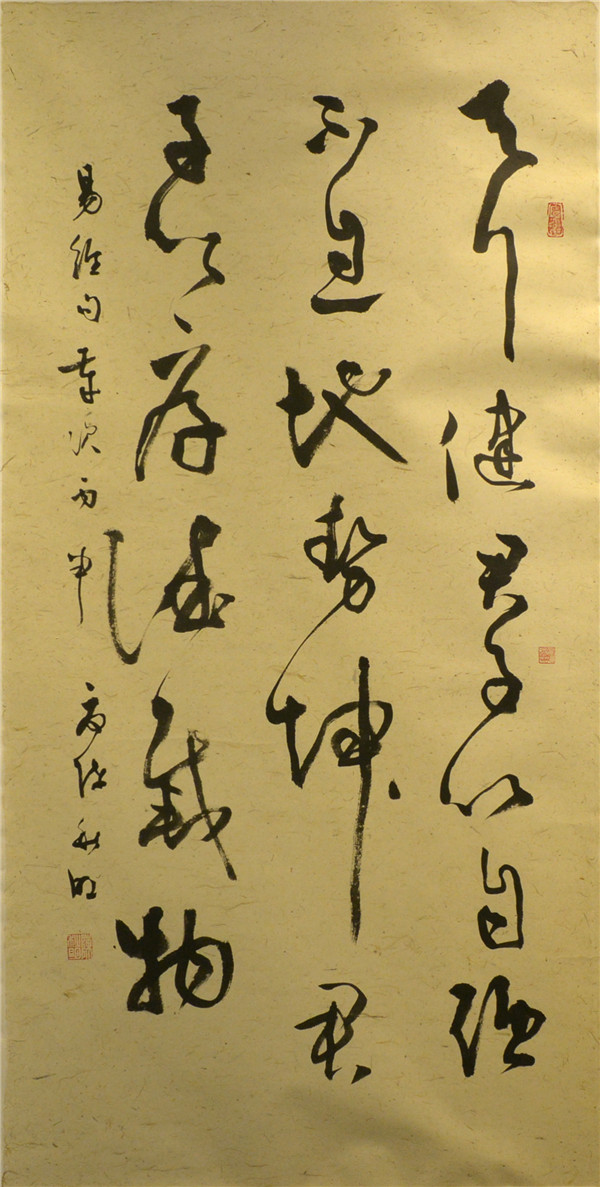 天行健君子以自强
不息地势坤君
子以厚德载物
易经句岁次丙申
秋明